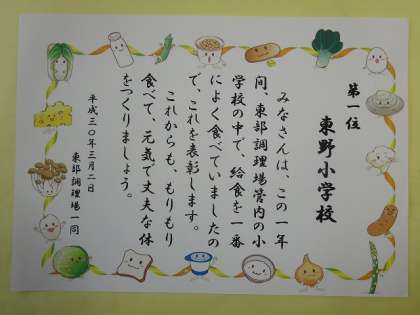 第一位
東野小学校
みなさんは、この一年
間、東部調理場管内の小
学校の中で、給食を一番
によく食べていましたの
で、これを表彰します。
これからも、もりもり
食べて、元気で丈夫な体
をつくりましょう。
平成三〇年三月二日
東部調理場一同